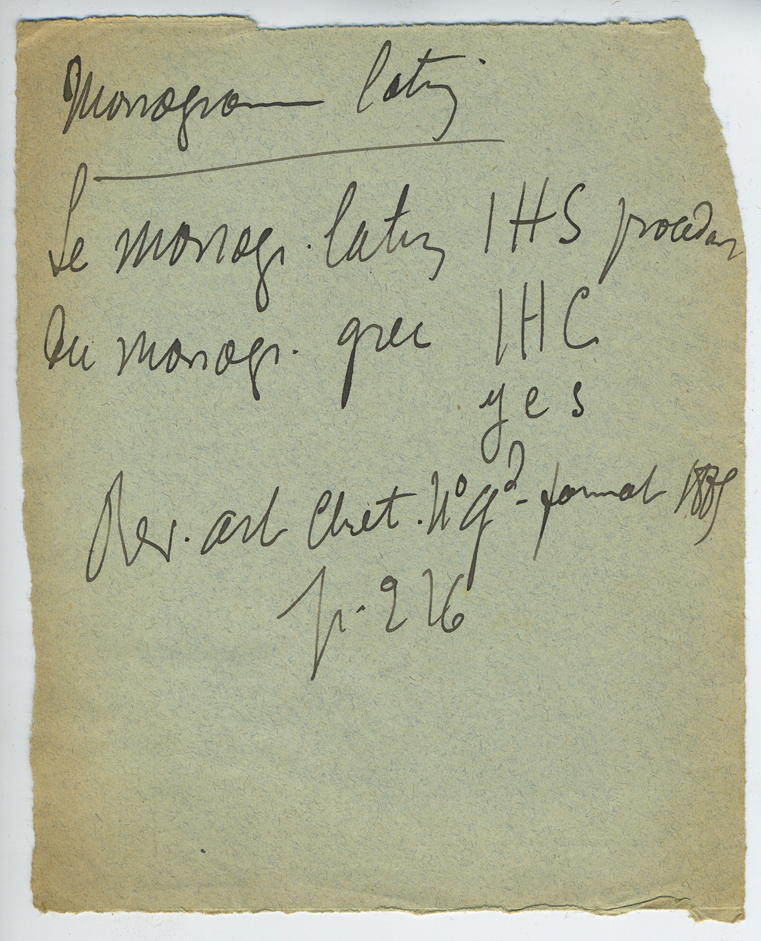 Monogramme latin
Le monogr. latin IHS procédant
du monogr. grec IHC
yes
Rev. art Chret. N° gd. format 1885
p. 226